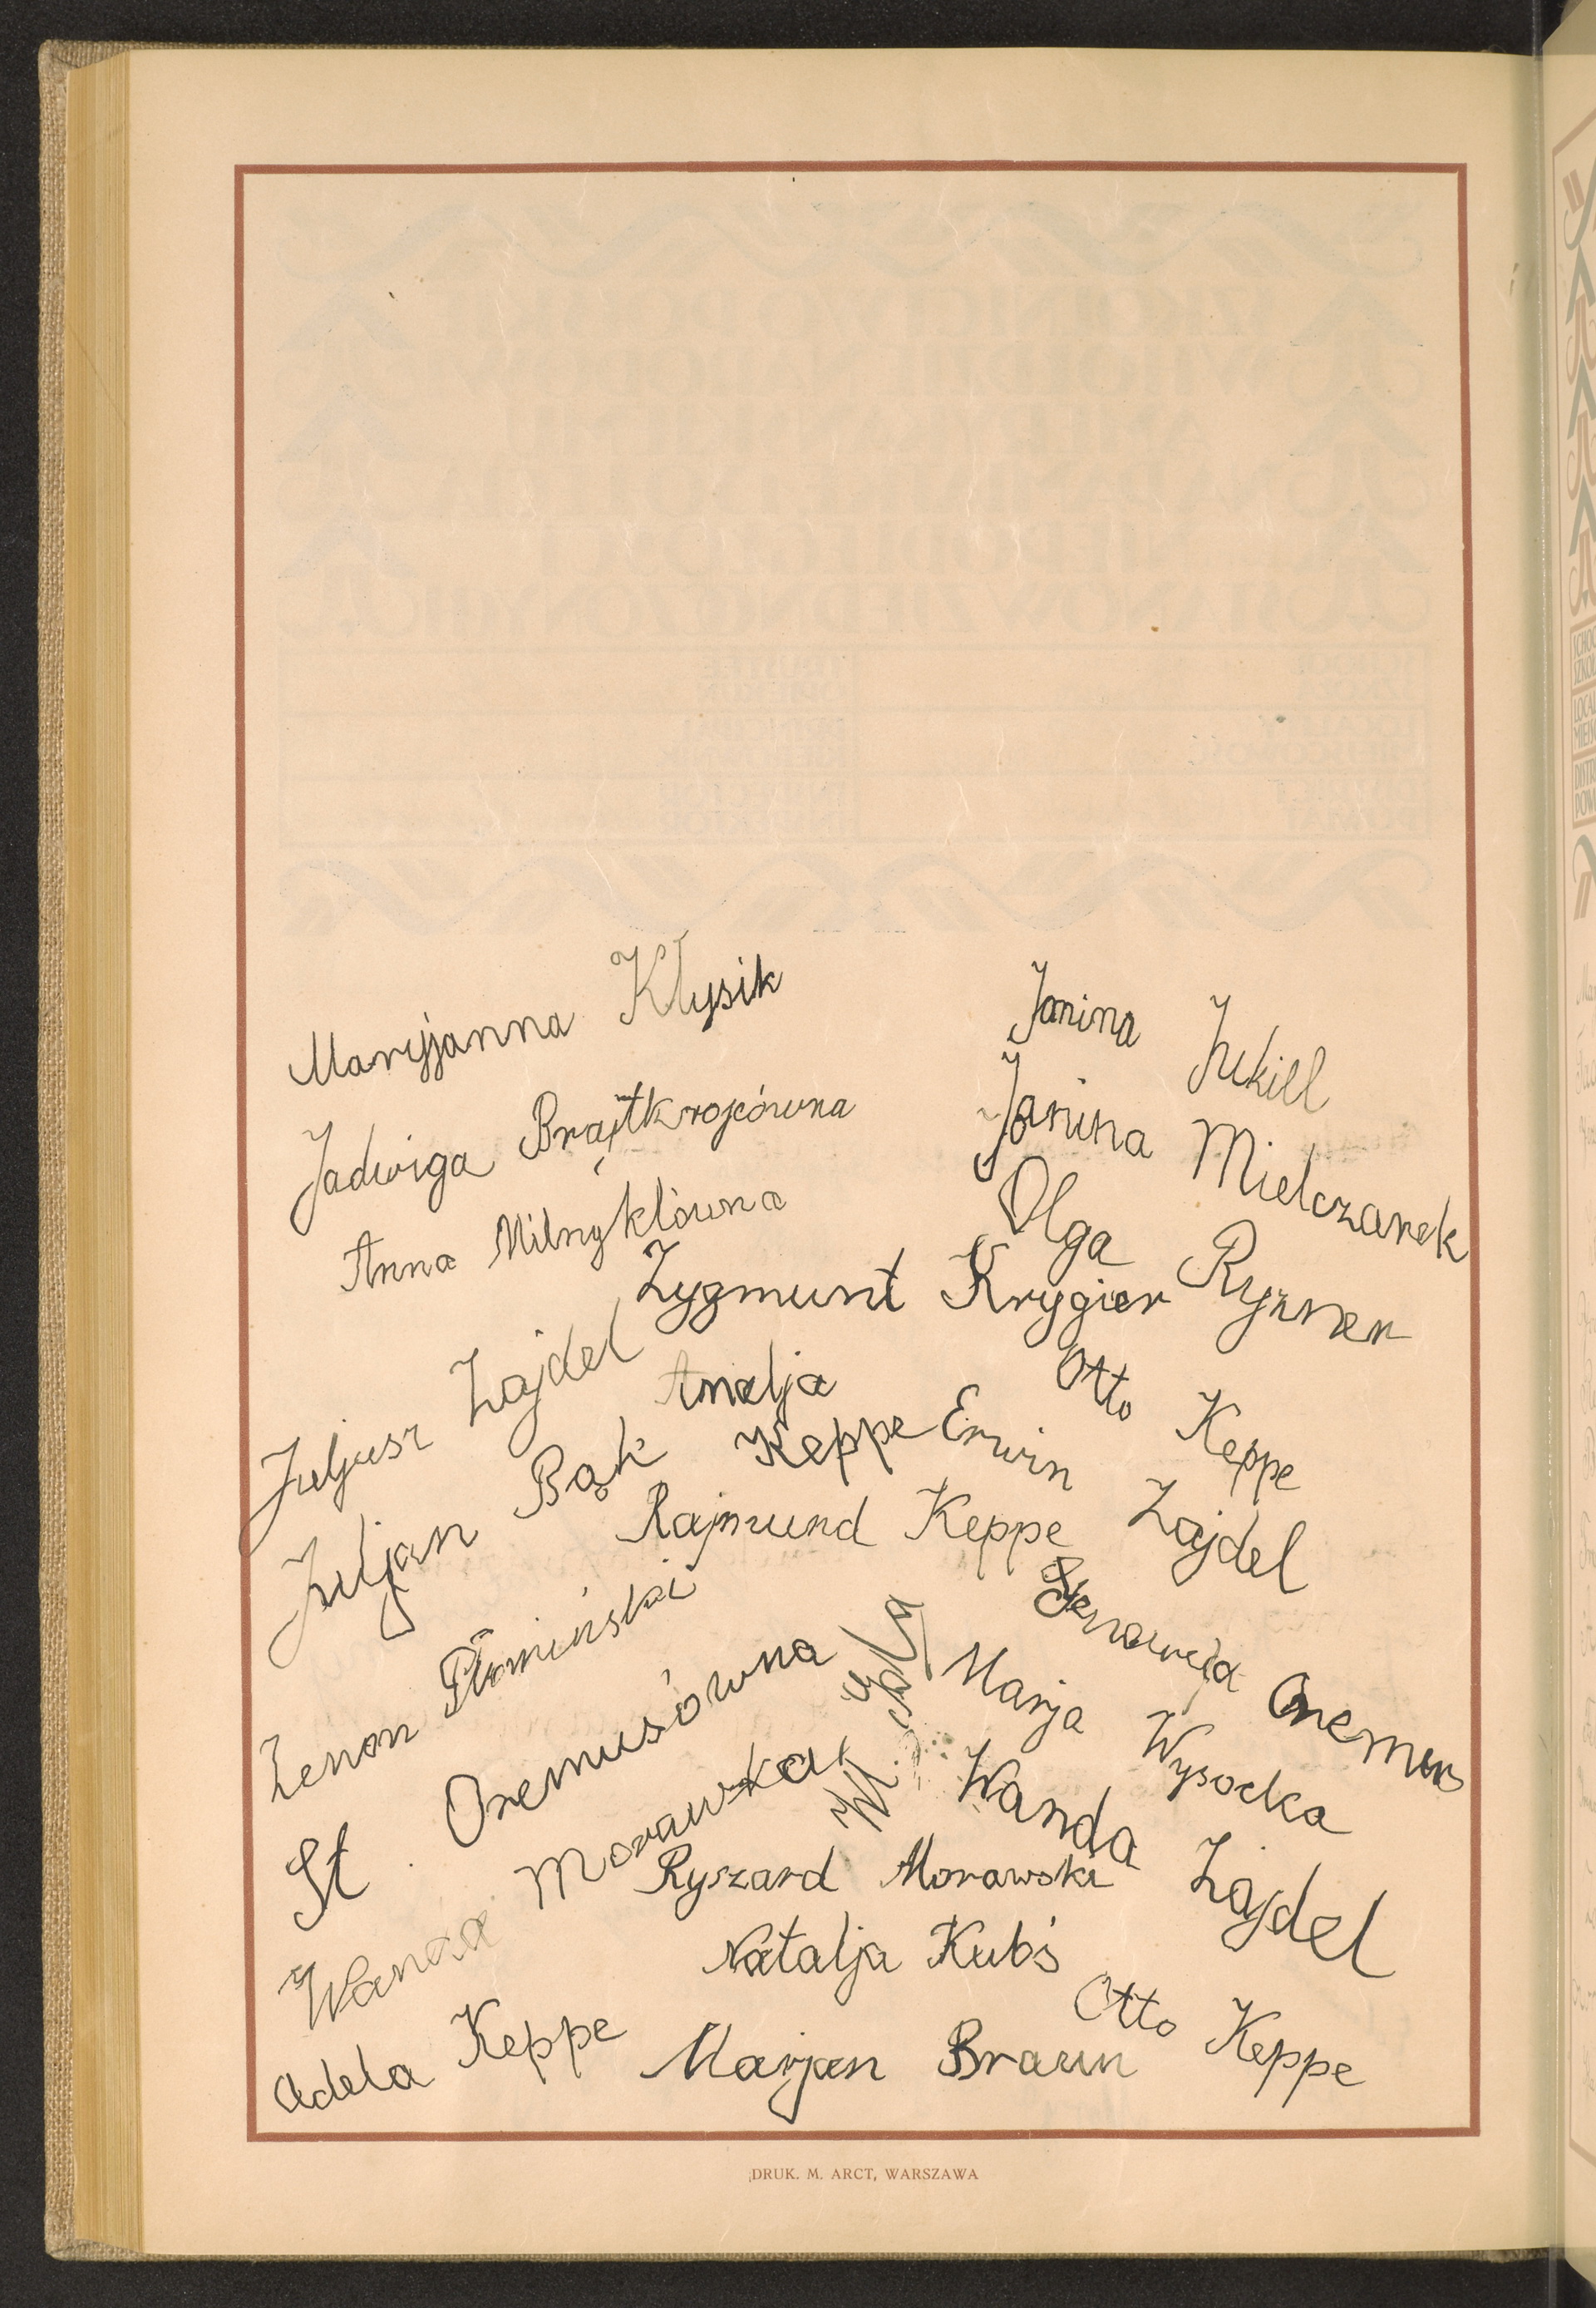 Maryjanna Kłysik
Janina Jukiel
Jadwiga Brajtkrojcówna
Janina Mielczarek
Anna Milnyklówna
Olga Ryzner
Zygmunt Krygier
Juljusz Zajdel
Otto Keppe
Anelja Keppe
Juljan Bąk
Erwin Zajdel
Rajmund Keppe
Zenon Płomiński
Onemus
St. Onemusówna
Marja Wysocka
Wanda Zajdel
Wanda Morawska
Ryszard Morawski
Natalja Kubś
Otto Keppe
Adela Keppe
Marjan Braun
DRUK. M. ARCT, WARSZAWA